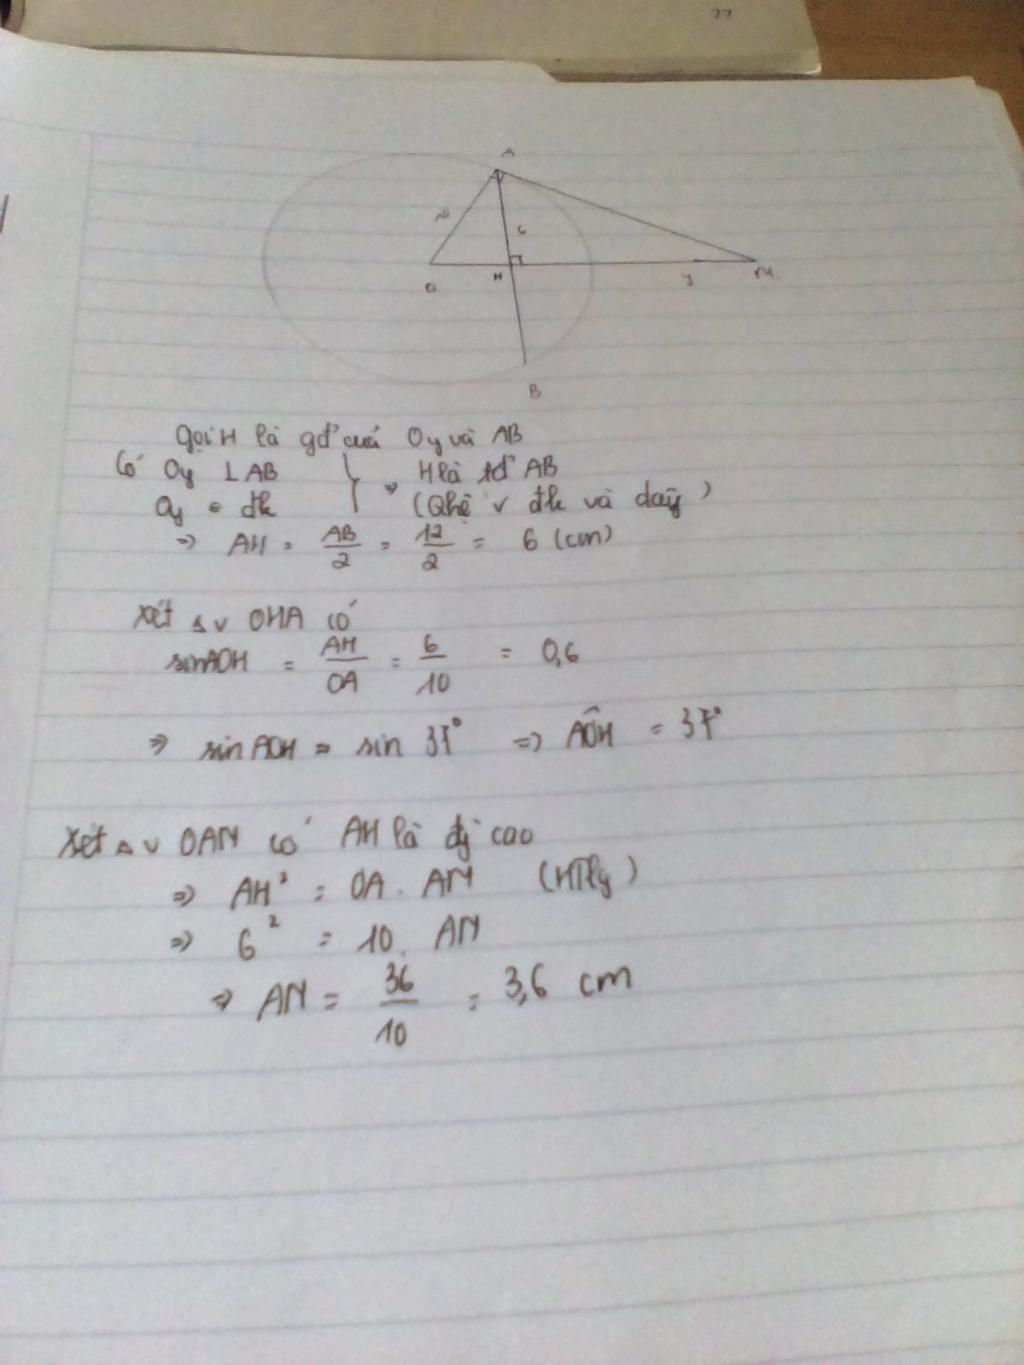 77
A
10
6
O
H
y
M
B
Gọi H là gđ' của Oy và AB
Có Oy ⊥ AB
Oy = đk
} ⇒ H là tđ' AB
(Qhệ v đk và dây)
⇒ AH = AB/2 = 12/2 = 6 (cm)
Xét Δ v OHA có
sin AOH = AH/OA = 6/10 = 0,6
⇒ sin AOH = sin 37° ⇒ AÔH = 37°
Xét Δ v OAM có AH là đg` cao
⇒ AH² = OA . AM (HTlg)
⇒ 6² = 10 . AM
⇒ AM = 36/10 = 3,6 cm